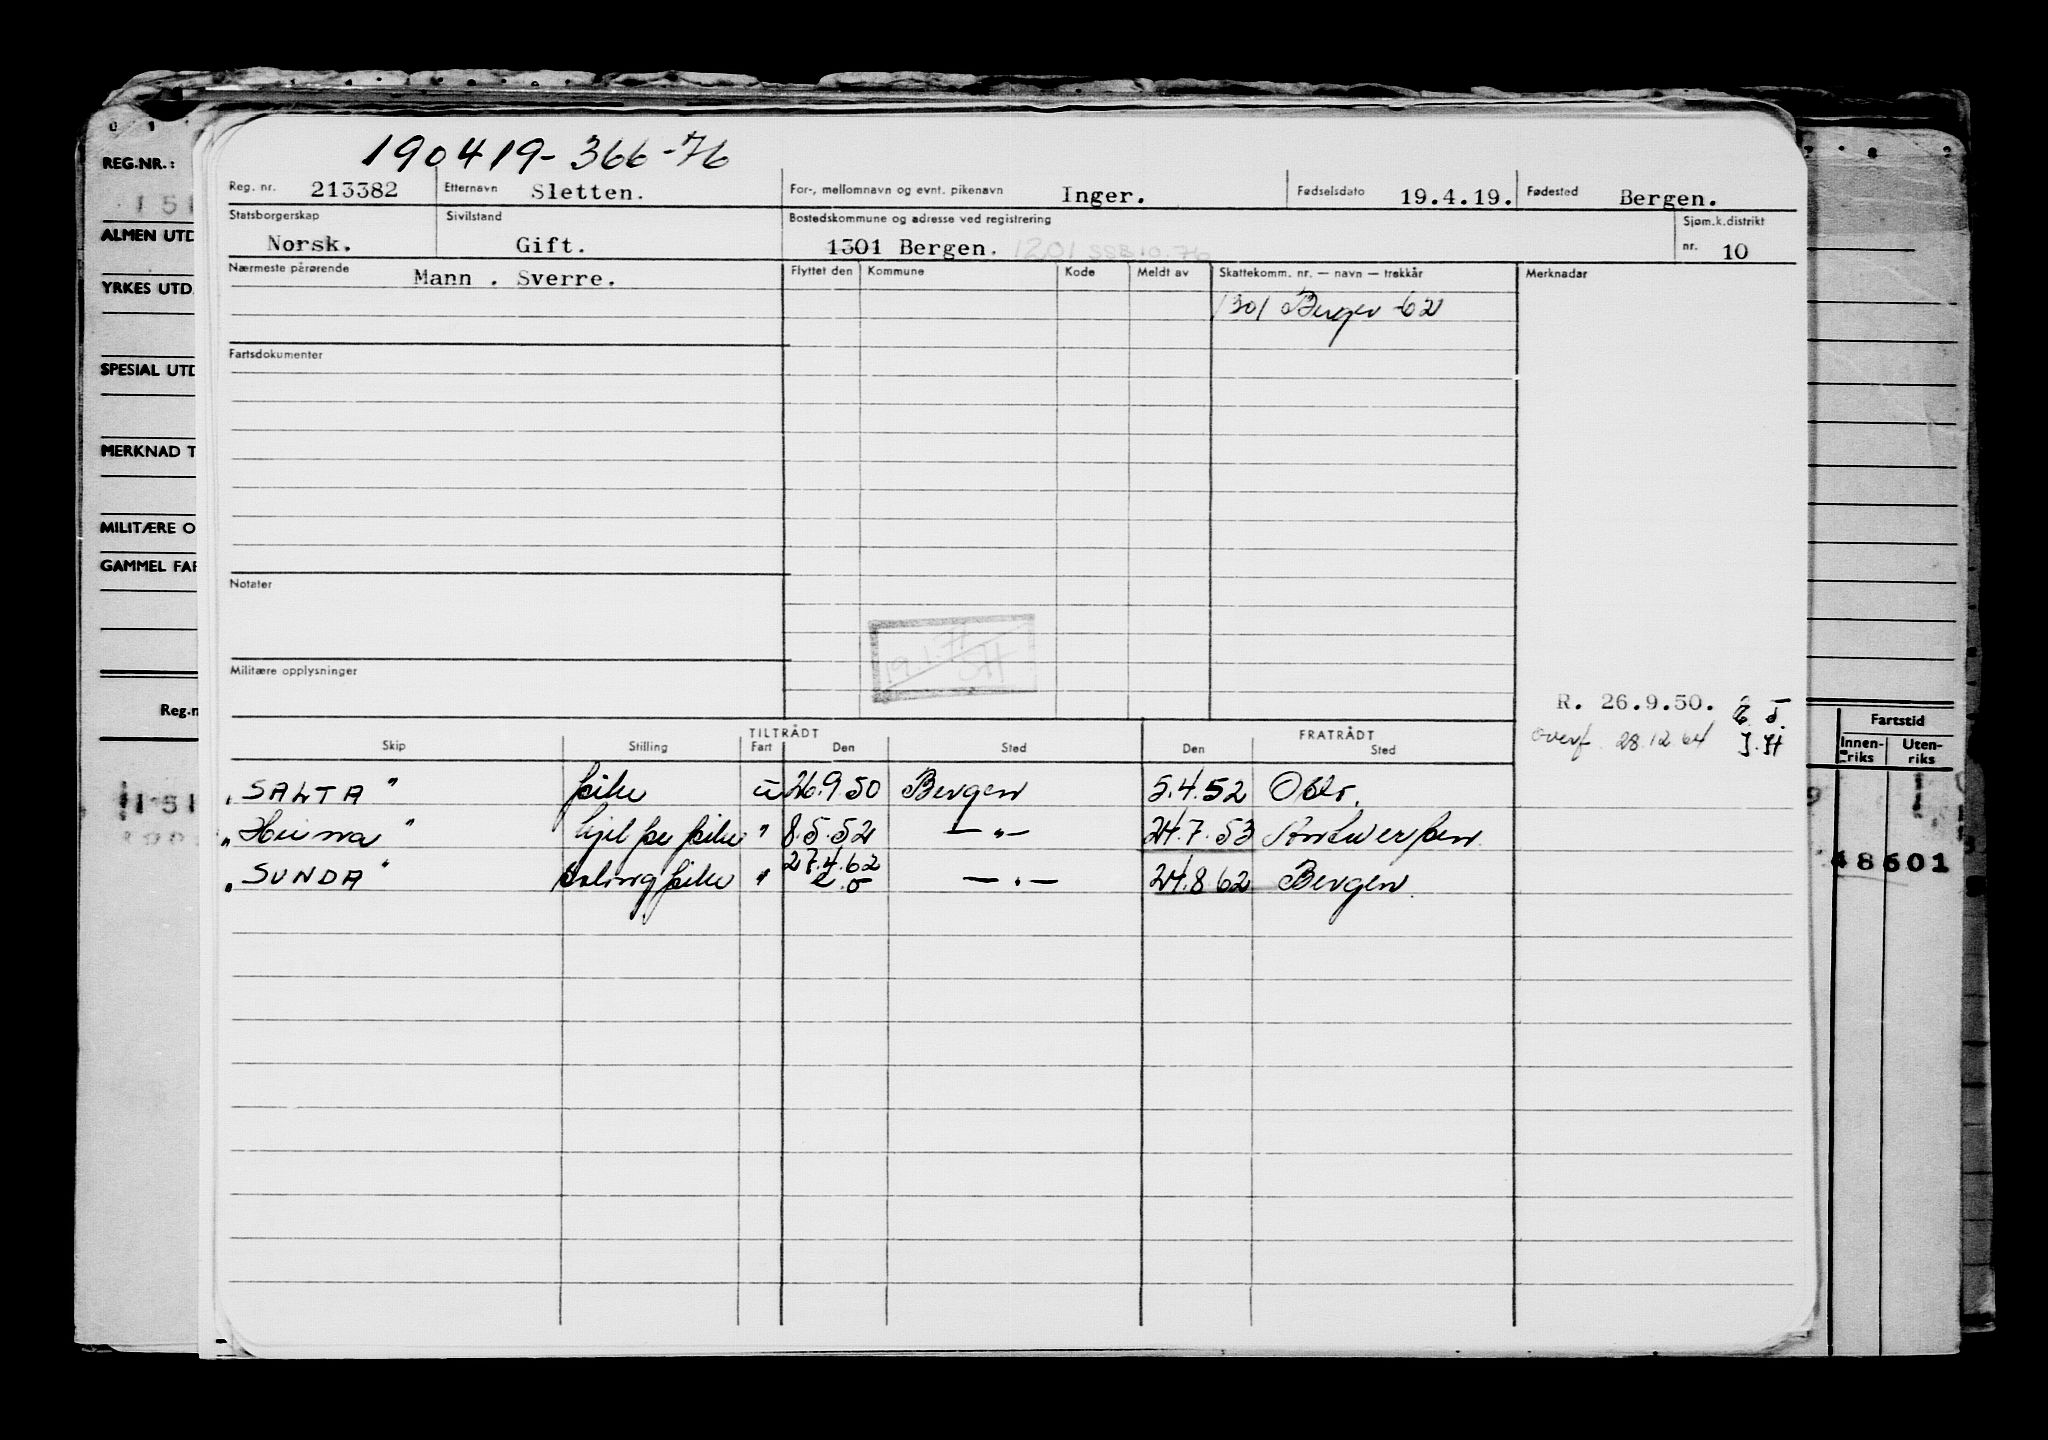 190419-366-76
Reg. nr. 213382 Etternavn Sletten. For-, mellomnavn og evnt. pikenavn Inger. Fødselsdato 19.4.19. Fødested Bergen.
Statsborgerskap Norsk. Sivilstand Gift. Bostedskommune og adresse ved registrering 1301 Bergen. 1201 SSB 10.76 Sjøm.k.distrikt nr. 10
Nærmeste pårørende Mann . Sverre. Flyttet den Kommune Kode Meldt av Skattekomm. nr. — navn — trekkår Merknader
1301 Bergen -62
Fartsdokumenter
Notater
19.1.77
Militære opplysninger
R. 26.9.50.
Overf. 28.12.64 J.H
TILTRÅDT FRATRÅDT
Skip Stilling Fart Den Sted Den Sted
"SALTA" pike u 26.9.50 Bergen 5.4.52 Oslo.
" 8.5.52 —"— 24.7.53 Antwerpen
"SUNDA" pike " 27.4.62 —"— 24.8.62 Bergen.
REG.NR.:
151
ALMEN UTD
YRKES UTD.
SPESIAL UTD
MERKNAD T
MILITÆRE O
GAMMEL FAR
Reg.n
151
Fartstid
Innen-riks Uten-riks
48601